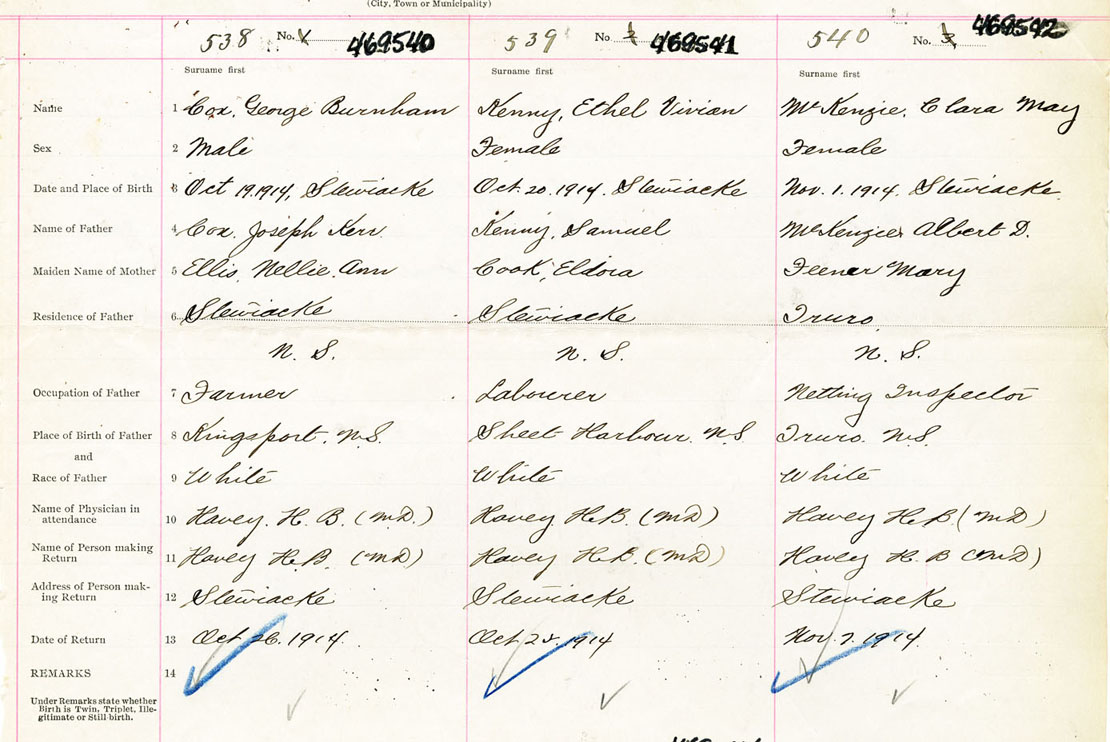 (City, Town or Municipality)
538 No. 469540 539 No. 469541 540 No. 469542
Surname first Surname first Surname first
Name 1 Cox, George Burnham Kenny, Ethel Vivian McKenzie, Clara May
Sex 2 Male Female Female
Date and Place of Birth 3 Oct 19.1914, Stewiacke Oct. 20.1914, Stewiacke Nov. 1. 1914, Stewiacke
Name of Father 4 Cox, Joseph Kerr Kenny, Samuel McKenzie, Albert D.
Maiden Name of Mother 5 Ellis, Nellie Ann Cook, Eldora Mary
Residence of Father 6 Stewiacke Stewiacke Truro
N. S. N. S. N. S.
Occupation of Father 7 Farmer Labourer Inspector
Place of Birth of Father 8 Kingsport, N.S. Sheet Harbour, N.S Truro. N.S.
and
Race of Father 9 White White White
Name of Physician in
attendance 10 Havey, H. B. (MD.) Havey H.B. (MD) Havey H.B. (MD)
Name of Person making
Return 11 Havey H.B. (MD) Havey H.B. (MD) Havey H. B (MD)
Address of Person mak-
ing Return 12 Stewiacke Stewiacke Stewiacke
Date of Return 13 Oct 26. 1914. Oct 1914 Nov. 7. 1914
REMARKS 14
Under Remarks state whether
Birth is Twin, Triplet, Ille-
gitimate or Still-birth.